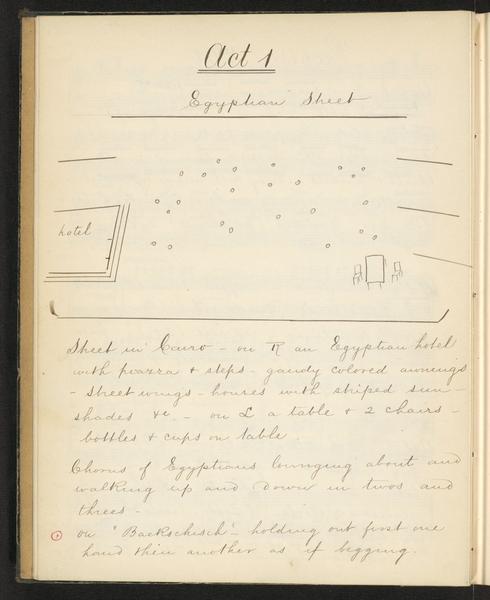 Act 1
Egyptian Street
hotel
Street in Cairo - on R an Egyptian hotel
with piazza & steps - gaudy colored awnings
- street wings - houses with striped sun-
shades &c - on L a table & 2 chairs -
bottles & cups on table.
Chorus of Egyptians lounging about and
walking up and down in twos and
threes -
on "Backschisch" - holding out first one
hand then another as if begging.